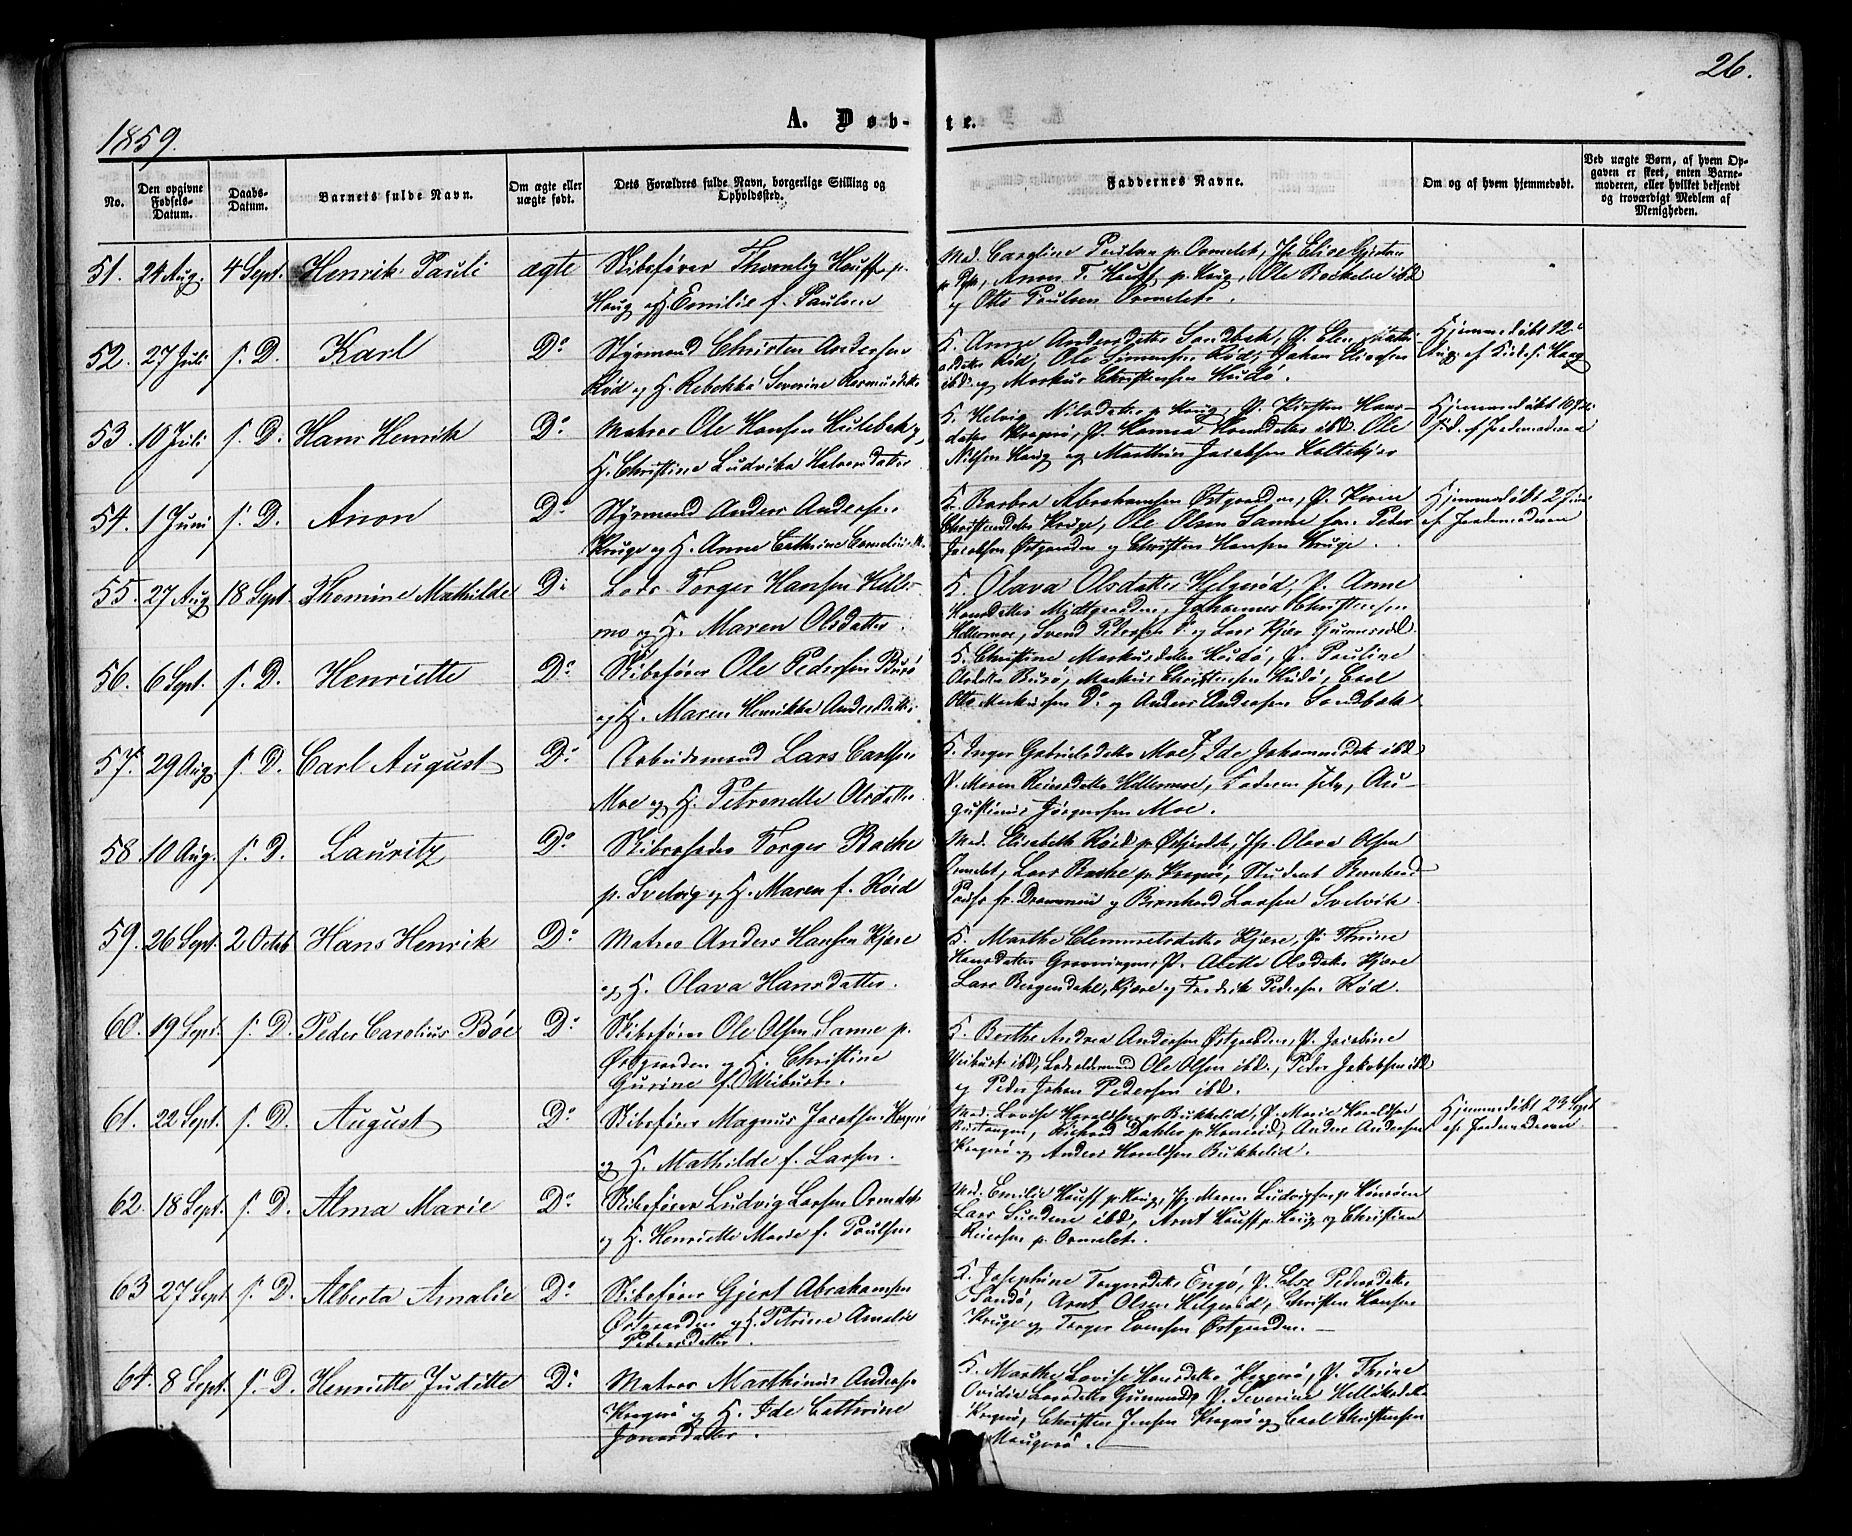 26.
1859.
A. Døb-te.
No.
Den opgivne Fødsels-Datum.
Daabs-Datum.
Barnets fulde Navn.
Om ægte eller uægte født.
Dets Forældres fulde Navn, borgerlige Stilling og Opholdssted.
Faddernes Navne.
Om og af hvem hjemmedøbt.
Ved uægte Børn, af hvem Opgaven er skeet, enten Barnemoderen, eller hvilket bekjendt og troværdigt Medlem af Menigheden.
51. 24 Aug. 4 Sept. Henrik Pauli ægte
Skibsfører Thomlig Hauff p.
Haug og H. Emilie f. Paulsen
Mad. Caroline Paulsen p. Ormelet, Jfr. Elise
Anon T. Hauff p. Haug, Ole ibd
og Otto Paulsen Ormelet.
52. 27 Juli s. D. Karl Do
Styrmand Christen Andersen
Rød og H. Rebekka Severine Rasmusdatter
K. Anne Andersdatter Sandbæk, P. Elen
Rød, Ole Simensen Rød, Johan
ibd. og Markus Christensen Hudø.
Hjemmedøbt 12te
Aug. af Kirkes. Haag
53. 10 Juli s. D. Hans Henrik Do
Matros Ole Hansen Hulebak og
H. Christine Ludvika Halvorsdatter
K. Helvig Nilsdatter p. Haug, P. Kirsten Hans-
datter Kragerø, P. Hansdatter ibd. Ole
Nilsen Haug og Marthin Jacobsen Holtekjær
Hjemmedøbt 10 Juli
af Jordemoderen
54. 1 Juni s. D. Anon Do
Styrmand Anders Andersen
Kruge og H. Anne Cathrine
K. Barbra Abrahamsen Østgaarden, P. Karen
Christensdatter Kruge, Ole Olsen Sanne Peder
Jacobsen Østgaarden og Christen Hansen Kruge.
Hjemmedøbt 2 Juni
af Jordemoderen
55. 27 Aug 18 Sept. Thomine Mathilde Do
Lods Torger Hansen Hilles-
mo og H. Maren Olsdatter.
K. Olava Olsdatter Helgerød, P. Anne
Hansdatter Midtgaarden, Johannes Christensen
Hellesmoe, Svend Pedersen Do og Lars Kjær
56. 6 Sept. s. D. Henriette Do
Skibsfører Ole Pedersen Burø
og H. Maren Henrikka Andersdatter
K. Christine Markusdatter Hudø, P. Pauline
Olsdatter Burø, Markus Christensen Hudø, Carl
Otto Markussen Do og Anders Andersen Sandbæk
57. 29 Aug. s. D. Carl August Do
Arbeidsmand Lars Carlsen
Moe og H. Petronelle Olsdatter
K. Inger Gabrielsdatter Moe, Ide Johannesdatter ibd
P. Maren Reiersdatter Hellesmoe, Faderen selv, Au-
gustinus Jørgensen Moe.
58. 10 Aug. s. D. Lauritz Do
Skibsreder Torger Bache
p. Svelvig og H. Maren f. Røed
Mad. Elisabeth Røed p. Jfr. Olava Olsen
Ormelet, Lars Bache p. Kragerø, Student Bernhard
fr. Drammen og Bernhard Larsen Svelvik.
59. 26 Sept. 2 Octob Hans Henrik Do
Matros Anders Hansen Kjære
og H. Olava Hansdatter.
K. Marthe Clemmetsdatter Kjære, P. Thrine
Hansdatter Grevningen, P. Alette Olsdatter Kjære
Lars Bergendahl, Kjære og Fredrik Pedersen Rød.
60. 19 Sept. s. D. Peder Carolius Bøe Do
Skibsfører Ole Olsen Sanne p.
Østgaarden og H. Christine
Gurine f. Wiibust.
K. Berthe Andrea Andersen Østgaarden, P. Jacobine
Wiibust ibd., Ole Olsen ibd., Peder Jakobsen ibd
og Peder Johan Pedersen ibd.
61. 22 Sept. s. D. August Do
Skibsfører Magnus Jacobsen Kragerø
og H. Mathilde f. Larsen.
Mad. Lovise Haraldsen p. Bukkelid, P. Marie Haraldsen
Ristangen, Richard Dahler p. Anders Andersen
Kragerø og Anders Haraldsen Bukkelid.
Hjemmedøbt 23 Sept
af Jordemoderen.
62. 18 Sept. s. D. Alma Marie Do
Skibsfører Ludvig Larsen Ormelet
og H. Henriette Marie f. Paulsen
Mad. Emilie Hauff p. Haug, Jfr. Maren Ludvigsen p.
Lars Sundene ibd, Arnt Hauff p. Haug og Christian
Reiersen p. Ormelet.
63 27 Sept s. D. Alberta Amalie Do
Skibsfører Gjert Abrahamsen
Østgaarden og H. Petrine Amalie
Pedersdatter.
K. Josephine Torgersdatter Engø, P. Else Pedersdatter
Sandø, Arnt Olsen Helgerød, Christen Hansen
Kruge og Torger Evensen Østgaarden.
64. 8 Sept. s. D. Henriette Juditte Do
Matros Marthinius Andersen
Kragerø og H. Ide Cathrine
Jonasdatter.
K. Marthe Lovise Hansdatter Kragerø, P. Thrine
Ovidie Larsdatter P. Severine
Kragerø, Christen Jensen Kragerø og Carl Christensen
Maugerø.